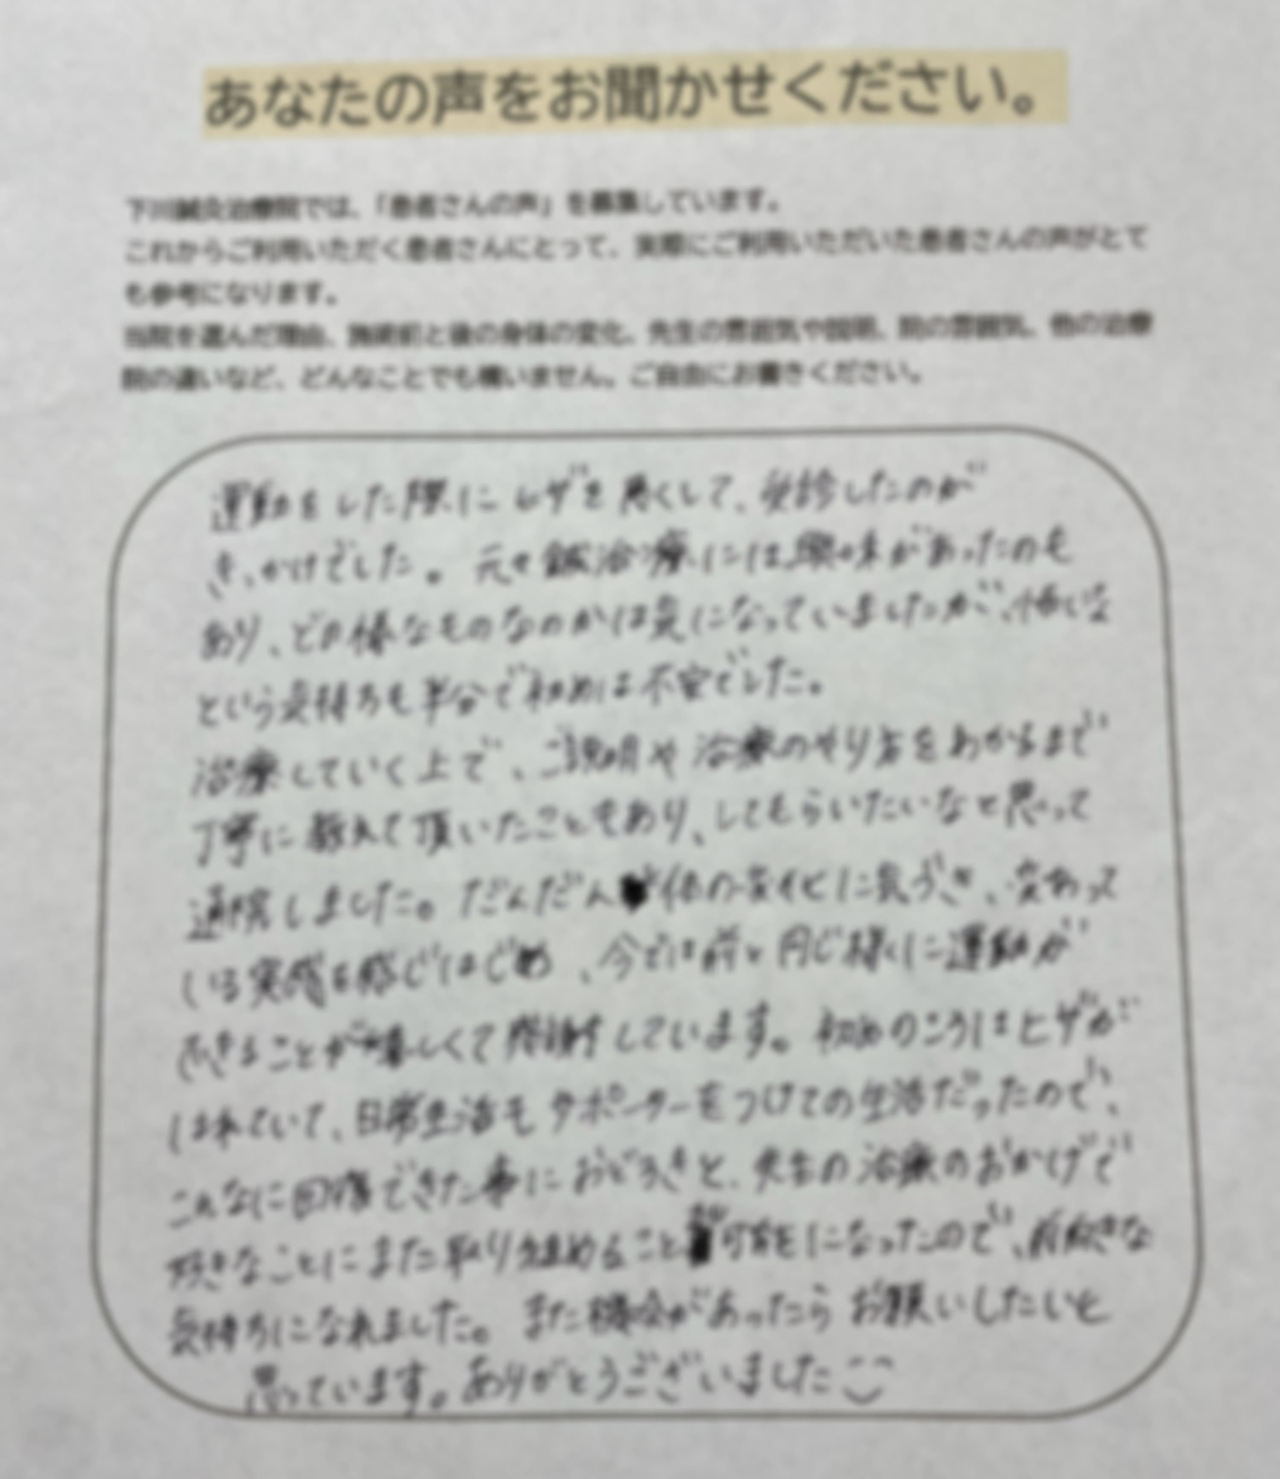 あなたの声をお聞かせください。
下川鍼灸治療院では、「患者さんの声」を募集しています。
これからご利用いただく患者さんにとって、実際にご利用いただいた患者さんの声がとて
も参考になります。
当院を選んだ理由、施術前と後の身体の変化、先生の雰囲気や説明、院の雰囲気、他の治療
院の違いなど、どんなことでも構いません。ご自由にお書きください。
運動をした際にヒザを悪くして、受診したのが
きっかけでした。元々鍼治療には興味があったのも
あり、どの様なものなのかは気になっていましたが、
という気持ちも半分で初めは不安でした。
治療していく上で、ご説明や治療のやり方をわかるまで
丁寧に教えて頂いたこともあり、してもらいたいなと思って
通院しました。だんだん体の変化に気づき、変わって
いる実感を感じはじめ、今では前と同じ様に運動が
できることが嬉しくて感謝しています。初めのころはヒザが
はれていて、日常生活もサポーターをつけての生活だったので、
こんなに回復できた事におどろきと、先生の治療のおかげで
好きなことにまた取り組めること可能になったので、前向きな
気持ちになれました。また機会があったらお願いしたいと
思っています。ありがとうございました